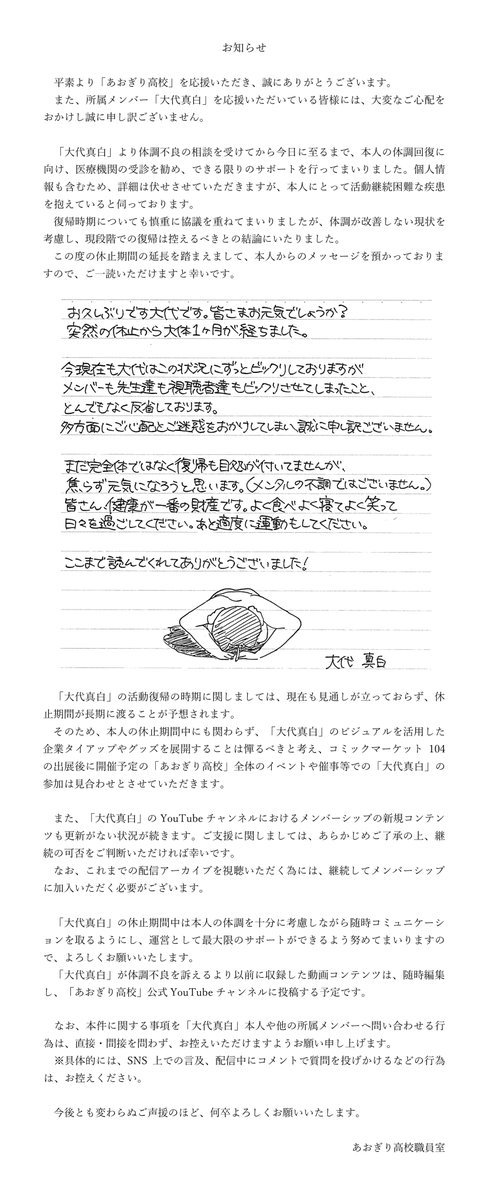 お知らせ
平素より「あおぎり高校」を応援いただき、誠にありがとうございます。
また、所属メンバー「大代真白」を応援いただいている皆様には、大変なご心配を
おかけし誠に申し訳ございません。
「大代真白」より体調不良の相談を受けてから今日に至るまで、本人の体調回復に
向け、医療機関の受診を勧め、できる限りのサポートを行ってまいりました。個人情
報も含むため、詳細は伏せさせていただきますが、本人にとって活動継続困難な疾患
を抱えていると伺っております。
復帰時期についても慎重に協議を重ねてまいりましたが、体調が改善しない現状を
考慮し、現段階での復帰は控えるべきとの結論にいたりました。
この度の休止期間の延長を踏まえまして、本人からのメッセージを預かっておりま
すので、ご一読いただけますと幸いです。
お久しぶりです大代です。皆さまお元気でしょうか?
突然の休止から大体1ヶ月が経ちました。
今現在も大代はこの状況にずっとビックリしておりますが
メンバーも先生達も視聴者達もビックリさせてしまったこと、
とんでもなく反省しております。
多方面にご心配とご迷惑をおかけしてしまい、誠に申し訳ございません。
まだ完全体ではなく復帰も目処が付いてませんが、
焦らず元気になろうと思います。(メンタルの不調ではございません。)
皆さん、健康が一番の財産です。よく食べよく寝てよく笑って
日々を過ごしてください。あと適度に運動もしてください。
ここまで読んでくれてありがとうございました!
大代 真白
「大代真白」の活動復帰の時期に関しましては、現在も見通しが立っておらず、休
止期間が長期に渡ることが予想されます。
そのため、本人の休止期間中にも関わらず、「大代真白」のビジュアルを活用した
企業タイアップやグッズを展開することは憚るべきと考え、コミックマーケット 104
の出展後に開催予定の「あおぎり高校」全体のイベントや催事等での「大代真白」の
参加は見合わせとさせていただきます。
また、「大代真白」の YouTube チャンネルにおけるメンバーシップの新規コンテン
ツも更新がない状況が続きます。ご支援に関しましては、あらかじめご了承の上、継
続の可否をご判断いただければ幸いです。
なお、これまでの配信アーカイブを視聴いただく為には、継続してメンバーシップ
に加入いただく必要がございます。
「大代真白」の休止期間中は本人の体調を十分に考慮しながら随時コミュニケーシ
ョンを取るようにし、運営として最大限のサポートができるよう努めてまいりますの
で、よろしくお願いいたします。
「大代真白」が体調不良を訴えるより以前に収録した動画コンテンツは、随時編集
し、「あおぎり高校」公式 YouTube チャンネルに投稿する予定です。
なお、本件に関する事項を「大代真白」本人や他の所属メンバーへ問い合わせる行
為は、直接・間接を問わず、お控えいただけますようお願い申し上げます。
※具体的には、SNS 上での言及、配信中にコメントで質問を投げかけるなどの行為
は、お控えください。
今後とも変わらぬご声援のほど、何卒よろしくお願いいたします。
あおぎり高校職員室